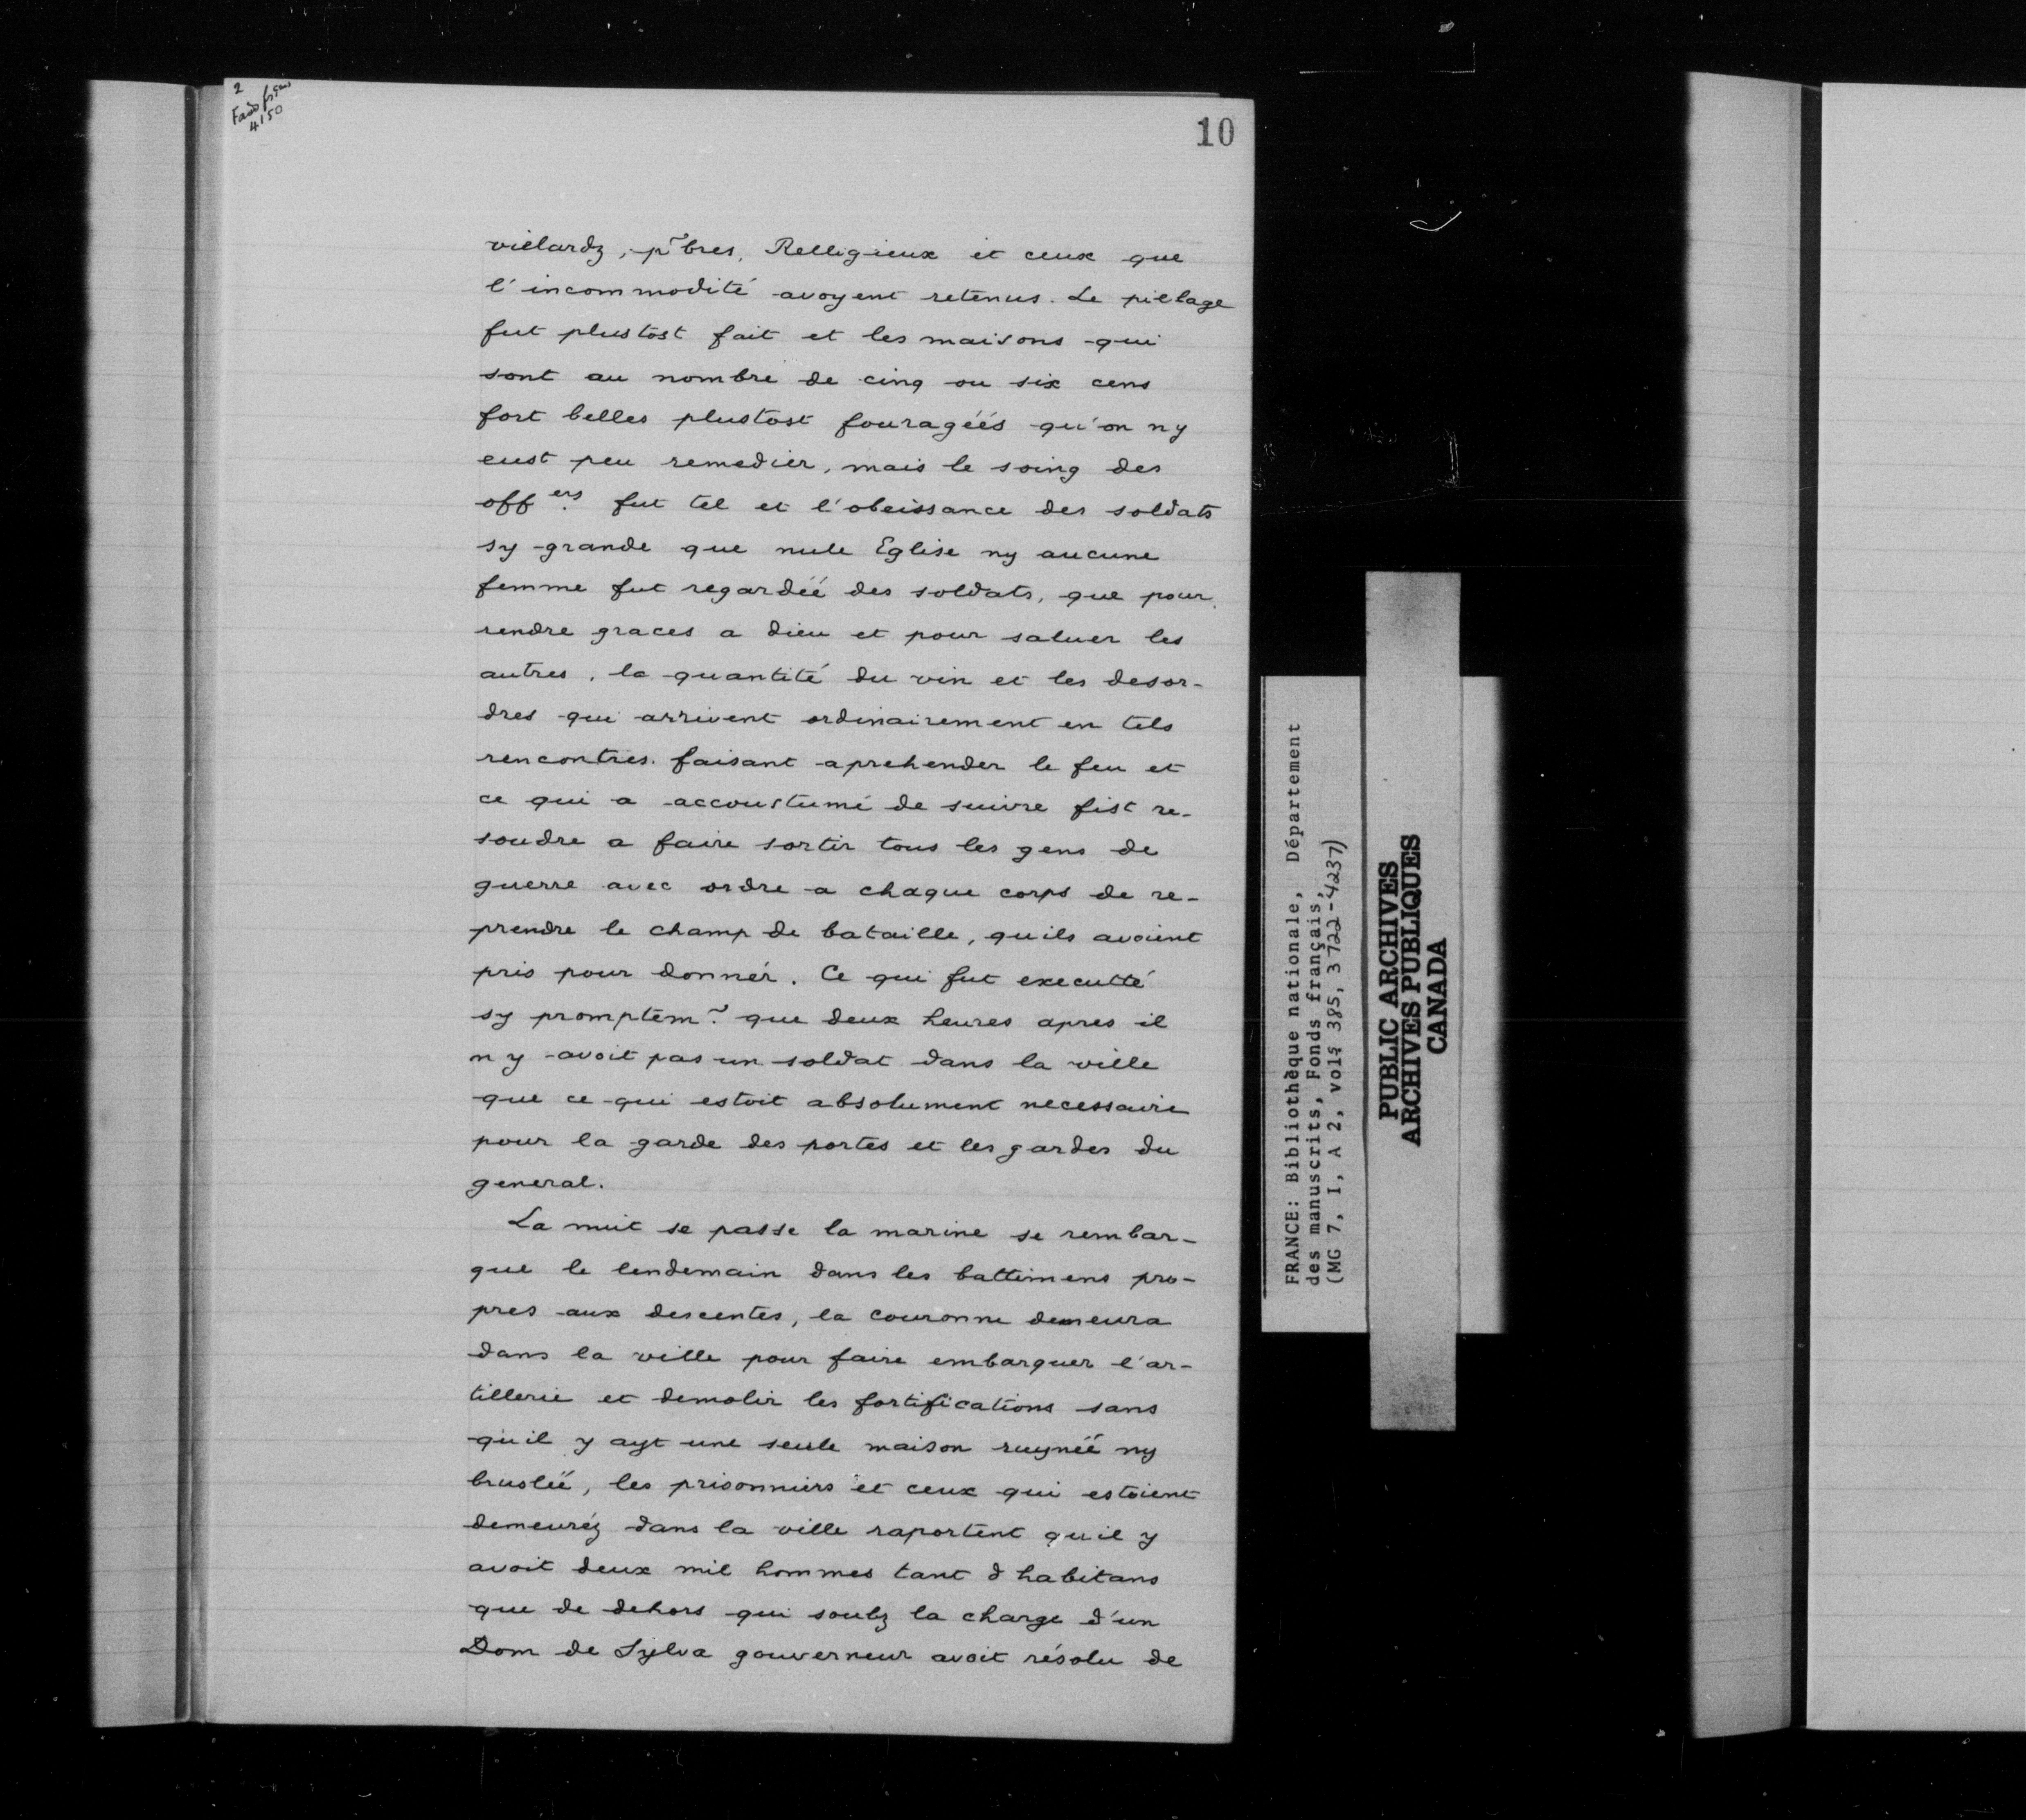 2
Fands frçais
4150
10
vielardz, p~bres, Relligieux et ceux que
l'incommodité avoyent retenus. Le pillage
fut plustost fait et les maisons qui
sont au nombre de cinq ou six cens
fort belles plustost fouragéés qu'on ny
eust peu remedier, mais le soing des
off.ers fut tel et l'obeissance des soldats
sy grande que nule Eglise ny aucune
femme fut regardéé des soldats, que pour
rendre graces a dieu et pour saluer les
autres, la quantité du vin et les desor-
dres qui arrivent ordinairement en tels
rencontres faisant aprehender le feu et
ce qui a accoustumé de suivre fist re-
soudre a faire sortir tous les gens de
guerre avec ordre a chaque corps de re-
prendre le champ de bataille, quils avoient
pris pour donnér. Ce qui fut executté
sy promptem.~ que deux heures apres il
n y avoit pas un soldat dans la ville
que ce qui estoit absolument necessaire
pour la garde des portes et les gardes du
general.
La nuit se passe la marine se rembar-
que le lendemain dans les battimens pro-
pres aux descentes, la couronne demeura
dans la ville pour faire embarquer l'ar-
tillerie et demolir les fortifications sans
quil y ayt une seule maison ruynéé ny
brusléé, les prisonniers et ceux qui estoient
demeuréz dans la ville raportent quil y
avoit deux mil hommes tant d habitans
que de dehors qui soubz la charge d'un
Dom de Sylva gouverneur avoit résolu de
FRANCE: Bibliothèque nationale, Département
des manuscrits, Fonds français,
(MG 7, I, A 2, vols 385, 3722-4237)
PUBLIC ARCHIVES
ARCHIVES PUBLIQUES
CANADA